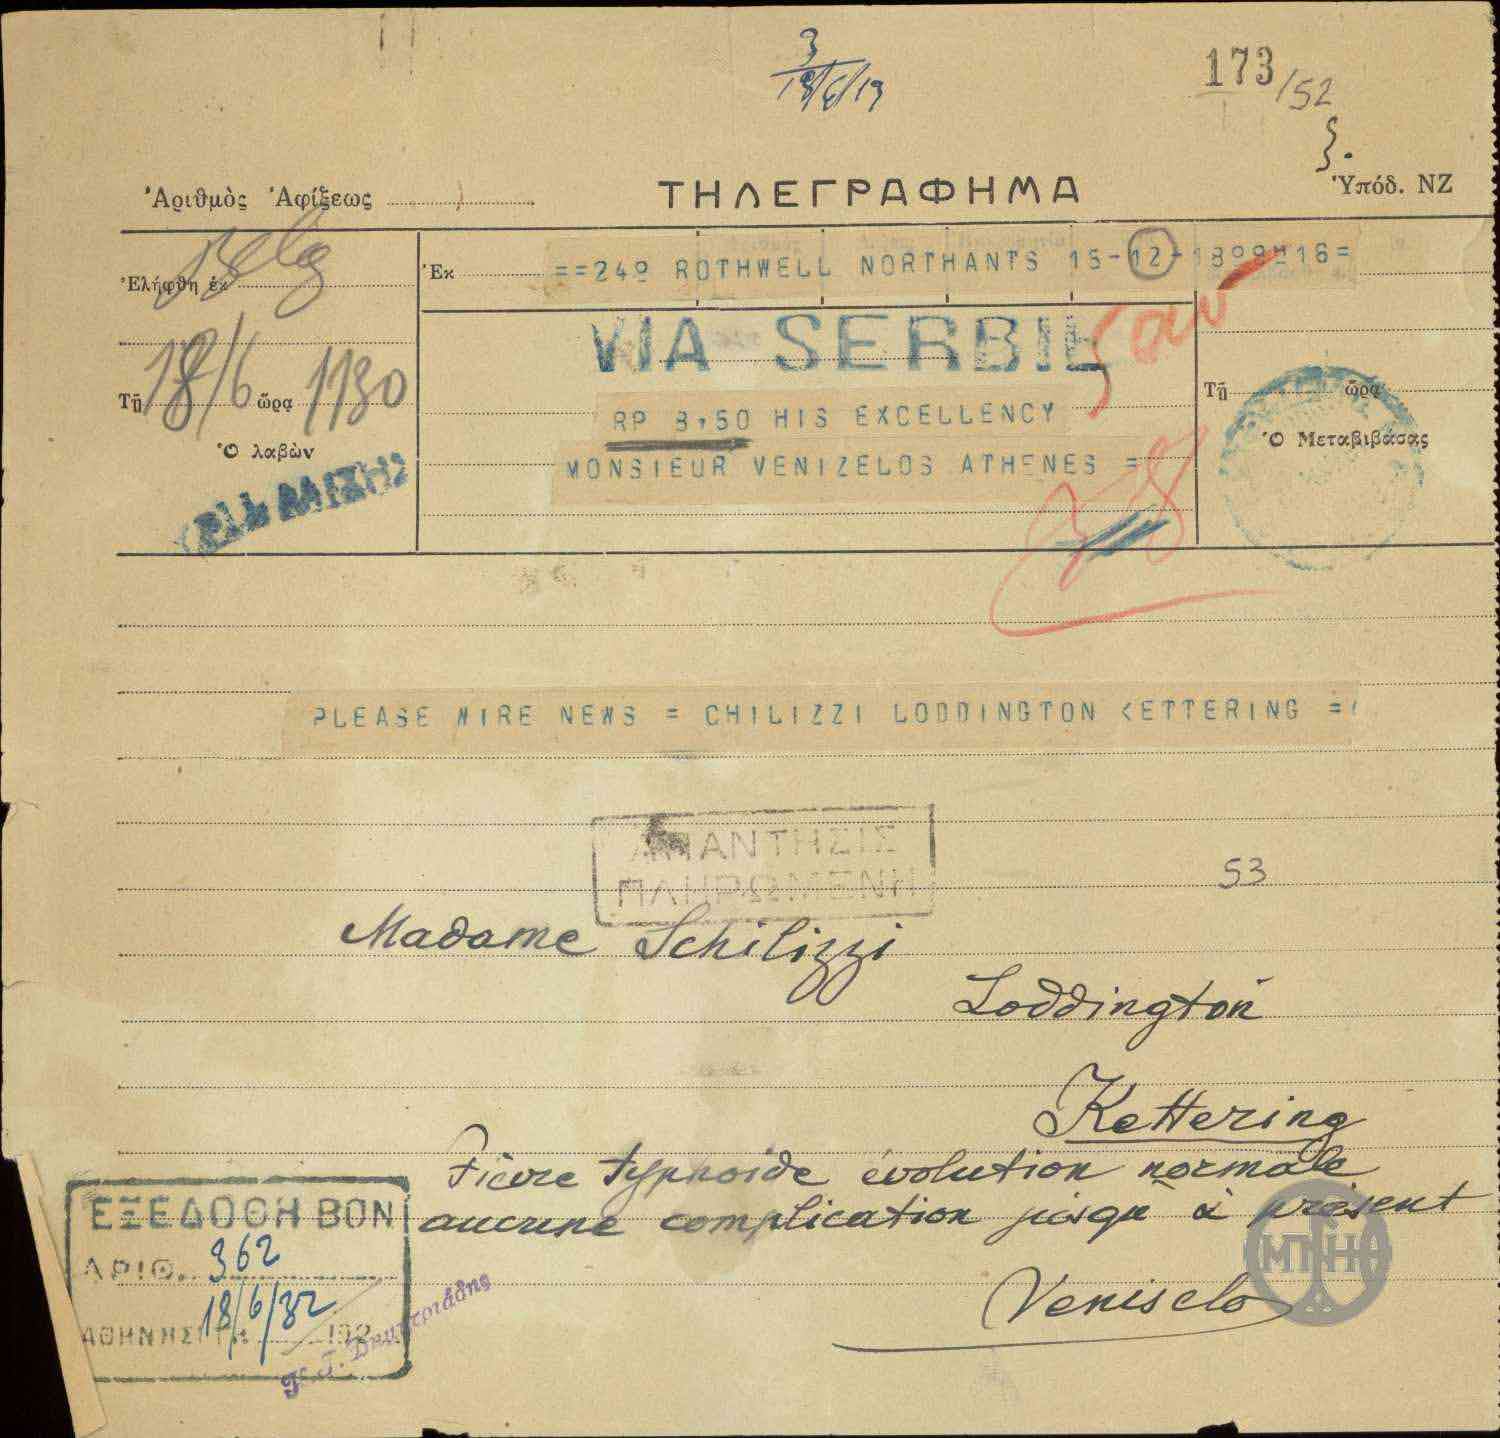 3
18/6/19
173/52
ξ.
Ἀριθμὸς Ἀφίξεως
ΤΗΛΕΓΡΑΦΗΜΑ
Ὑπόδ. ΝΖ
Ἐλήφθη ἐκ
Ἐκ ==24º ROTHWELL NORTHANTS 15-12-18º9H16=
VIA SERBIE
Τῇ 18/6 ὥρᾳ 1130
RP 8,50 HIS EXCELLENCY
Τῇ ὥρᾳ
Ὁ λαβὼν
MONSIEUR VENIZELOS ATHENES =
Ὁ Μεταβιβάσας
PLEASE WIRE NEWS = CHILIZZI LODDINGTON KETTERING =
ΑΠΑΝΤΗΣΙΣ
ΠΛΗΡΩΜΕΝΗ
53
Madame Schilizzi
Loddington
Kettering
Fièvre typhoïde évolution normale
aucune complication jusqu'à présent
Veniselo
ΕΞΕΔΟΘΗ ΒΟΝ
ΑΡΙΘ. 362
18/6/32
ΑΘΗΝΗΣΙ 192
ΜΠΝΗΘ